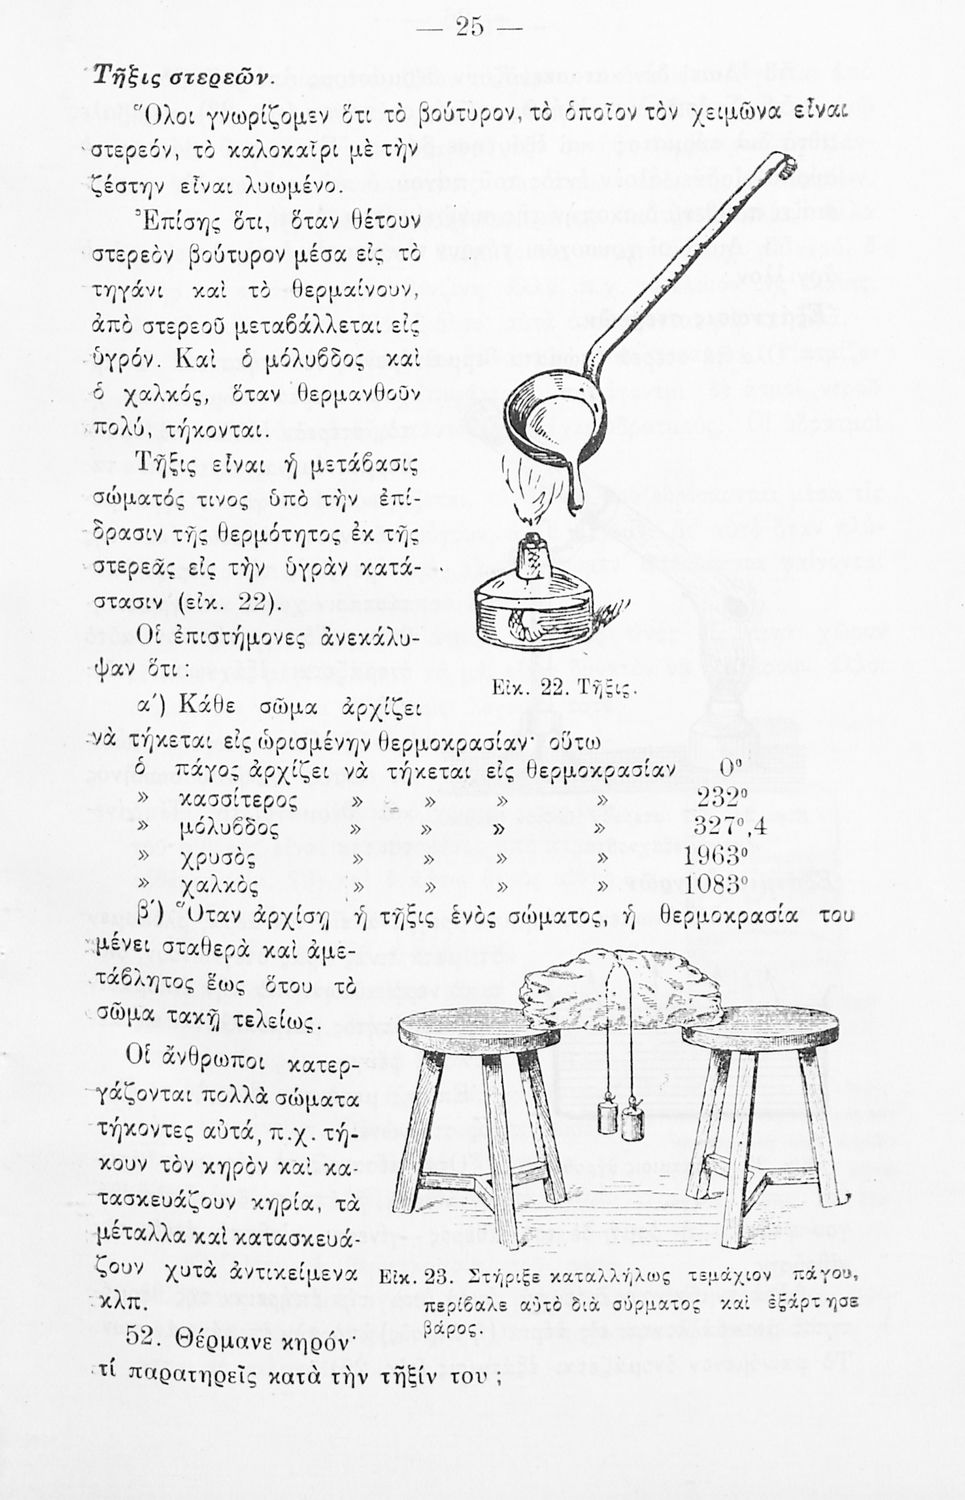 — 25 —
Τῆξις στερεῶν.
Ὅλοι γνωρίζομεν ὅτι τὸ βούτυρον, τὸ ὁποῖον τὸν χειμῶνα εἶναι
στερεόν, τὸ καλοκαῖρι μὲ τὴν
ζέστην εἶναι λυωμένο.
Ἐπίσης ὅτι, ὅταν θέτουν
στερεὸν βούτυρον μέσα εἰς τὸ
τηγάνι καὶ τὸ θερμαίνουν,
ἀπὸ στερεοῦ μεταβάλλεται εἰς
ὑγρόν. Καὶ ὁ μόλυβδος καὶ
ὁ χαλκός, ὅταν θερμανθοῦν
πολύ, τήκονται.
Τῆξις εἶναι ἡ μετάβασις
σώματός τινος ὑπὸ τὴν ἐπί-
δρασιν τῆς θερμότητος ἐκ τῆς
στερεᾶς εἰς τὴν ὑγρὰν κατά-
στασιν (εἰκ. 22).
Οἱ ἐπιστήμονες ἀνεκάλυ-
ψαν ὅτι:
Εἰκ. 22. Τῆξις.
α΄) Κάθε σῶμα ἀρχίζει
νὰ τήκεται εἰς ὡρισμένην θερμοκρασίαν· οὕτω
ὁ πάγος ἀρχίζει νὰ τήκεται εἰς θερμοκρασίαν 0°
» κασσίτερος » » » » 232°
» μόλυβδος » » » » 327°,4
» χρυσὸς » » » » 1963°
» χαλκὸς » » » » 1083°
β΄) Ὅταν ἀρχίσῃ ἡ τῆξις ἑνὸς σώματος, ἡ θερμοκρασία του
μένει σταθερὰ καὶ ἀμε-
τάβλητος ἕως ὅτου τὸ
σῶμα τακῇ τελείως.
Οἱ ἄνθρωποι κατερ-
γάζονται πολλὰ σώματα
τήκοντες αὐτά, π.χ. τή-
κουν τὸν κηρὸν καὶ κα-
τασκευάζουν κηρία, τὰ
μέταλλα καὶ κατασκευά-
ζουν χυτὰ ἀντικείμενα
κλπ.
Εἰκ. 23. Στήριξε καταλλήλως τεμάχιον πάγου,
περίβαλε αὐτὸ διὰ σύρματος καὶ ἐξάρτησε
βάρος.
52. Θέρμανε κηρόν·
τί παρατηρεῖς κατὰ τὴν τῆξίν του ;